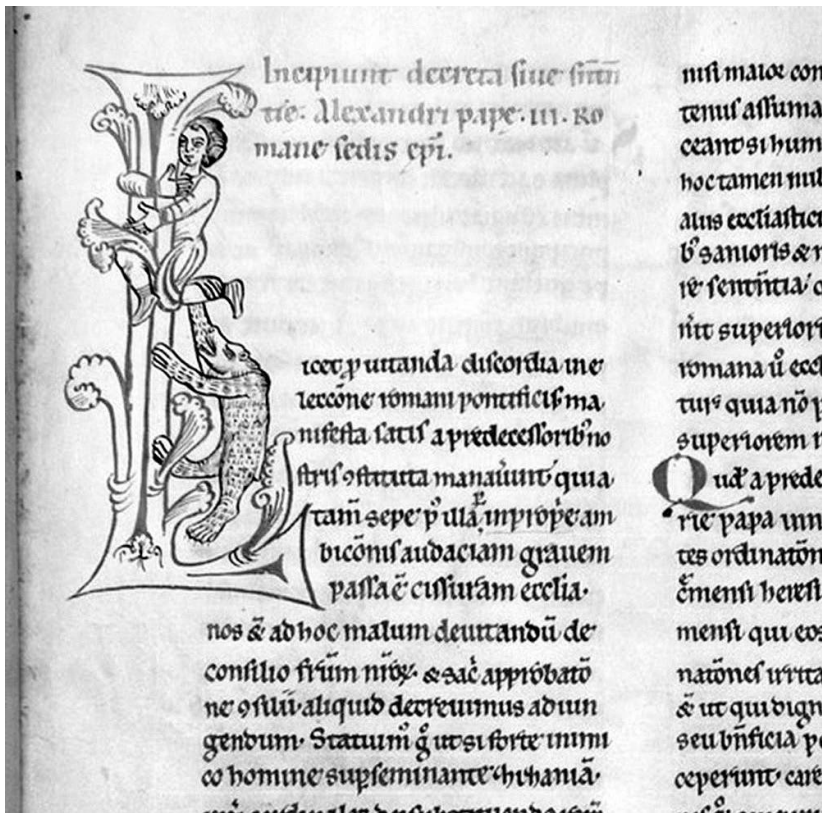 Incipiunt decreta siue sñtñ
tie. Alexandri pape .iii. Ro
mane sedis epi.
Licet p uitanda discordia in e
leccõne romani pontificis ma
nifesta satis a predecessorib' no
stris ꝯstituta manauunt' quia
tam sepe p' illa inprope am
bicõnis audaciam grauem
passa ẽ cissuram ecclia.
nos & ad hoc malum deuitandũ de
consilio frũm nroꝝ. & sac approbatõ
ne ꝯsiliũ. aliquid decreuimus adiun
gendum. Statuim' g ut si forte inimi
co homine supseminante zizaniã.
nisi maior con
tenus assuma
ceant si hum
hoc tamen nul
aliis ecclīastici
b' sanioris & m
ie sententia o
rit superiori
romana ũ eccl
tur quia nõ p
superiorem r
Quod a prede
rie papa inn
tes ordinatõn
cmensi heresi
mensi qui eos
natõnes irrita
& ut qui dign
seu bñficia p
ceperunt. care